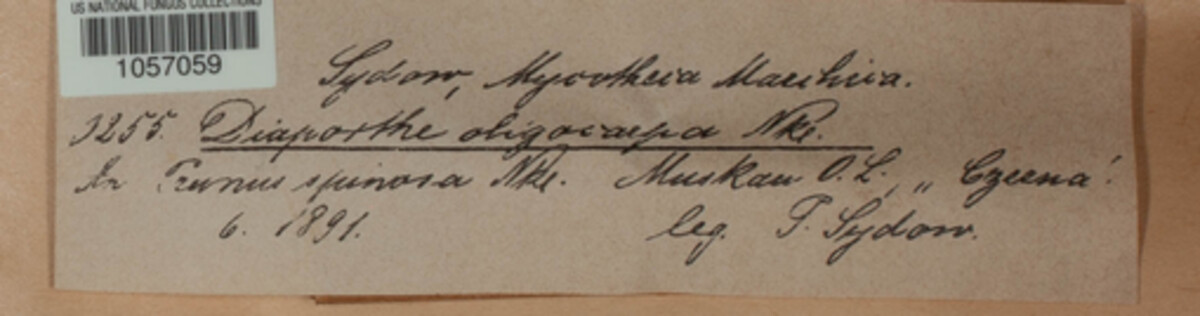 US NATIONAL FUNGUS COLLECTIONS
1057059
Sydow, Mycotheca Marchica.
3255. Diaporthe oligocarpa Nke.
An Prunus spinosa Nke. Muskau O. L. „Czerna".
6. 1891. leg. P. Sydow.